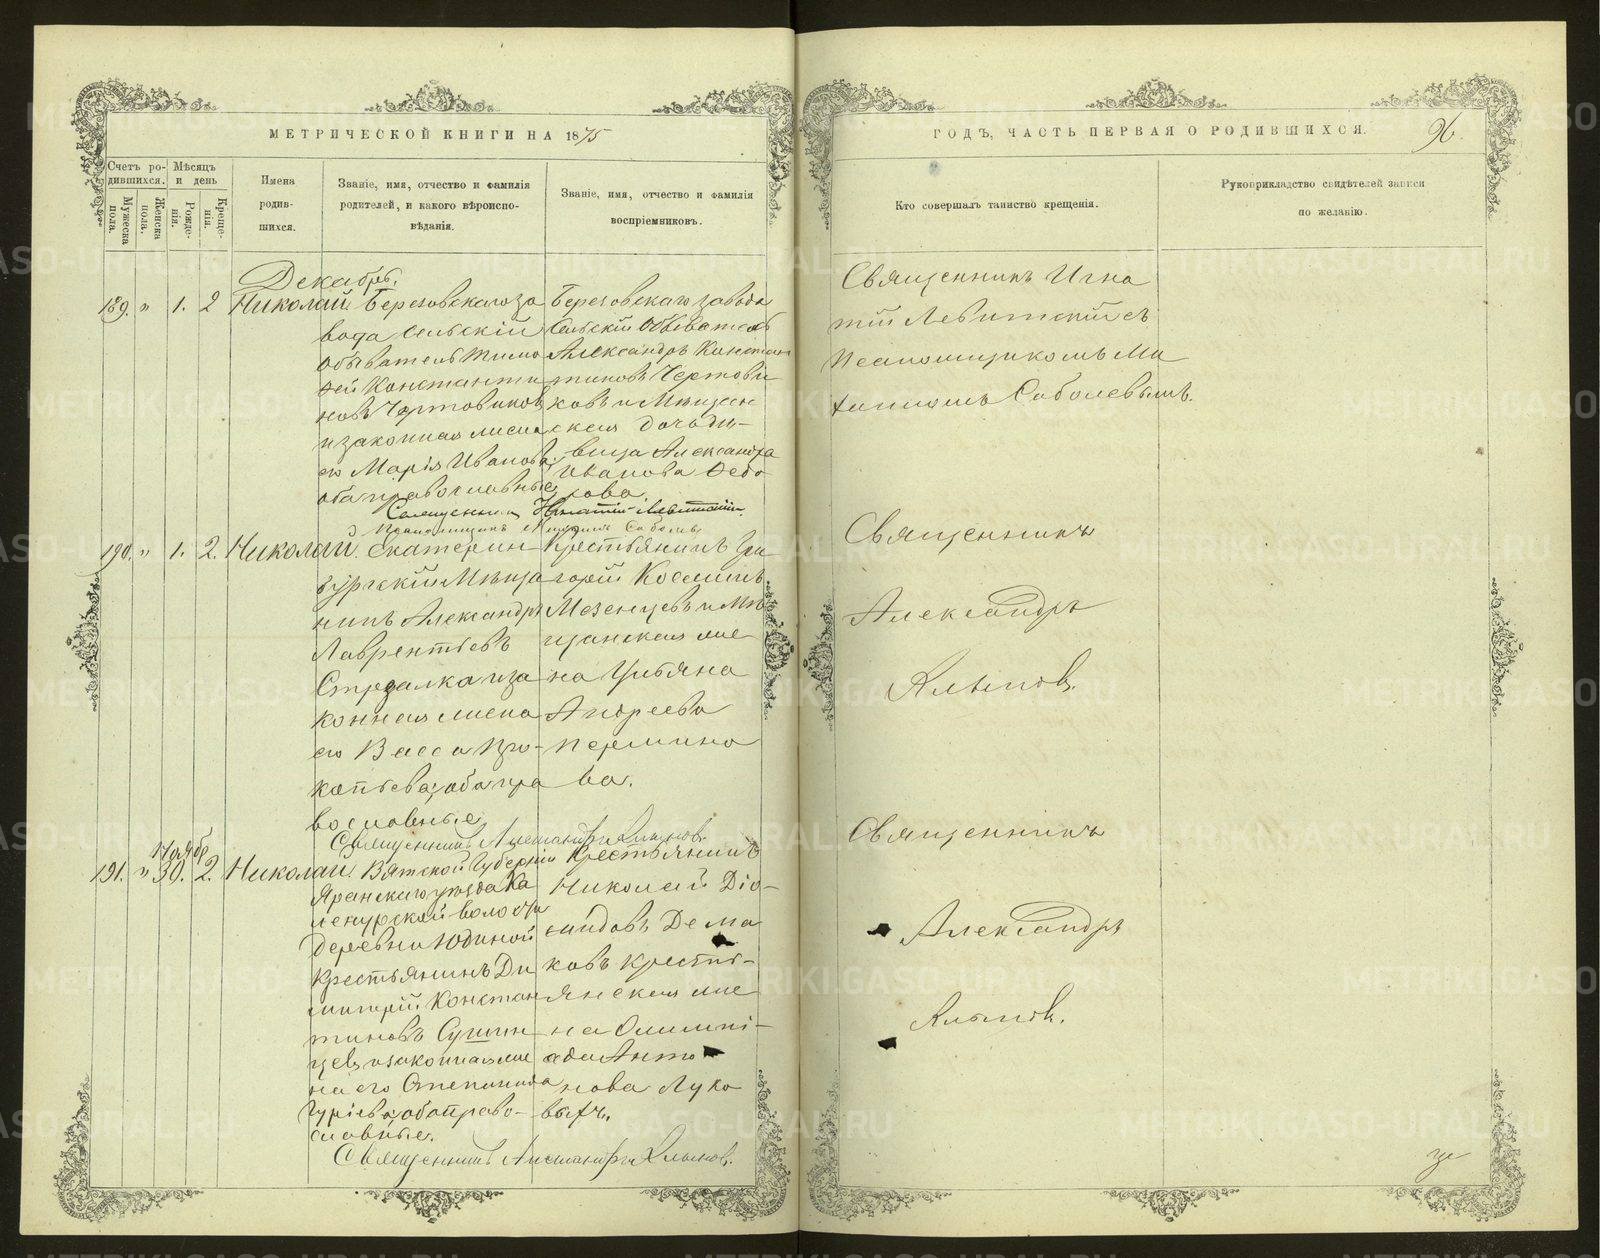 МЕТРИЧЕСКОЙ КНИГИ НА 1875
ГОДЪ, ЧАСТЬ ПЕРВАЯ О РОДИВШИХСЯ.
96.
Счетъ ро-
дившихся.
Мужеска
пола.
Женска
пола.
Мѣсяцъ
и день
Рожде-
нія.
Креще-
нія.
Имена
родив-
шихся.
Званіе, имя, отчество и фамилія
родителей, и какого вѣроиспо-
вѣданія.
Званіе, имя, отчество и фамилія
воспріемниковъ.
Кто совершалъ таинство крещенія.
Рукоприкладство свидѣтелей записи
по желанію.
Декабрь.
189. " 1. 2 Николай
Березовскаго за
вода Сельскій
Обыватель Тимо
ѳей Константи
новъ Чертовиковъ
и законная жена
его Марія Иванова,
оба православные
Березовскаго завода
Сельскій Обыватель
Александръ Констан
тиновъ Чертови
ковъ и Мѣщан
ская дочь дѣ-
вица Александра
Иванова Ѳедо
рова.
Священникъ Игнатій Левитскій
Священникъ Игна
тій Левитскій съ
Псаломщикомъ Ми
хаиломъ Соболевымъ.
190. " 1. 2. Николай
Екатерин
бургскій Мѣща
нинъ Александръ
Лаврентьевъ
Стрѣлка и за
конная жена
его Васса Про-
копьева, оба пра
вославные
Крестьянинъ Гри
горій Косминъ
Мезенцевъ и Мѣ
щанская же
на Ульяна
Андреева
Пермино
ва.
Священникъ Александръ
Священникъ
Александръ
191. " Ноябр. 30. 2. Николай
Вятской Губерніи
Яранскаго уѣзда Ка
деревни Юдиной
Крестьянинъ Ди
митрій Констан
тиновъ Сушин
цевъ и законная же
на его Степанида
Гуріева, оба право-
славные.
Крестьянинъ
Николай Діо-
мидовъ Дема
ковъ Крестьянская же
на Олимпі-
ада Анто
нова Луко
выхъ.
Священникъ Александръ
Священникъ
Александръ